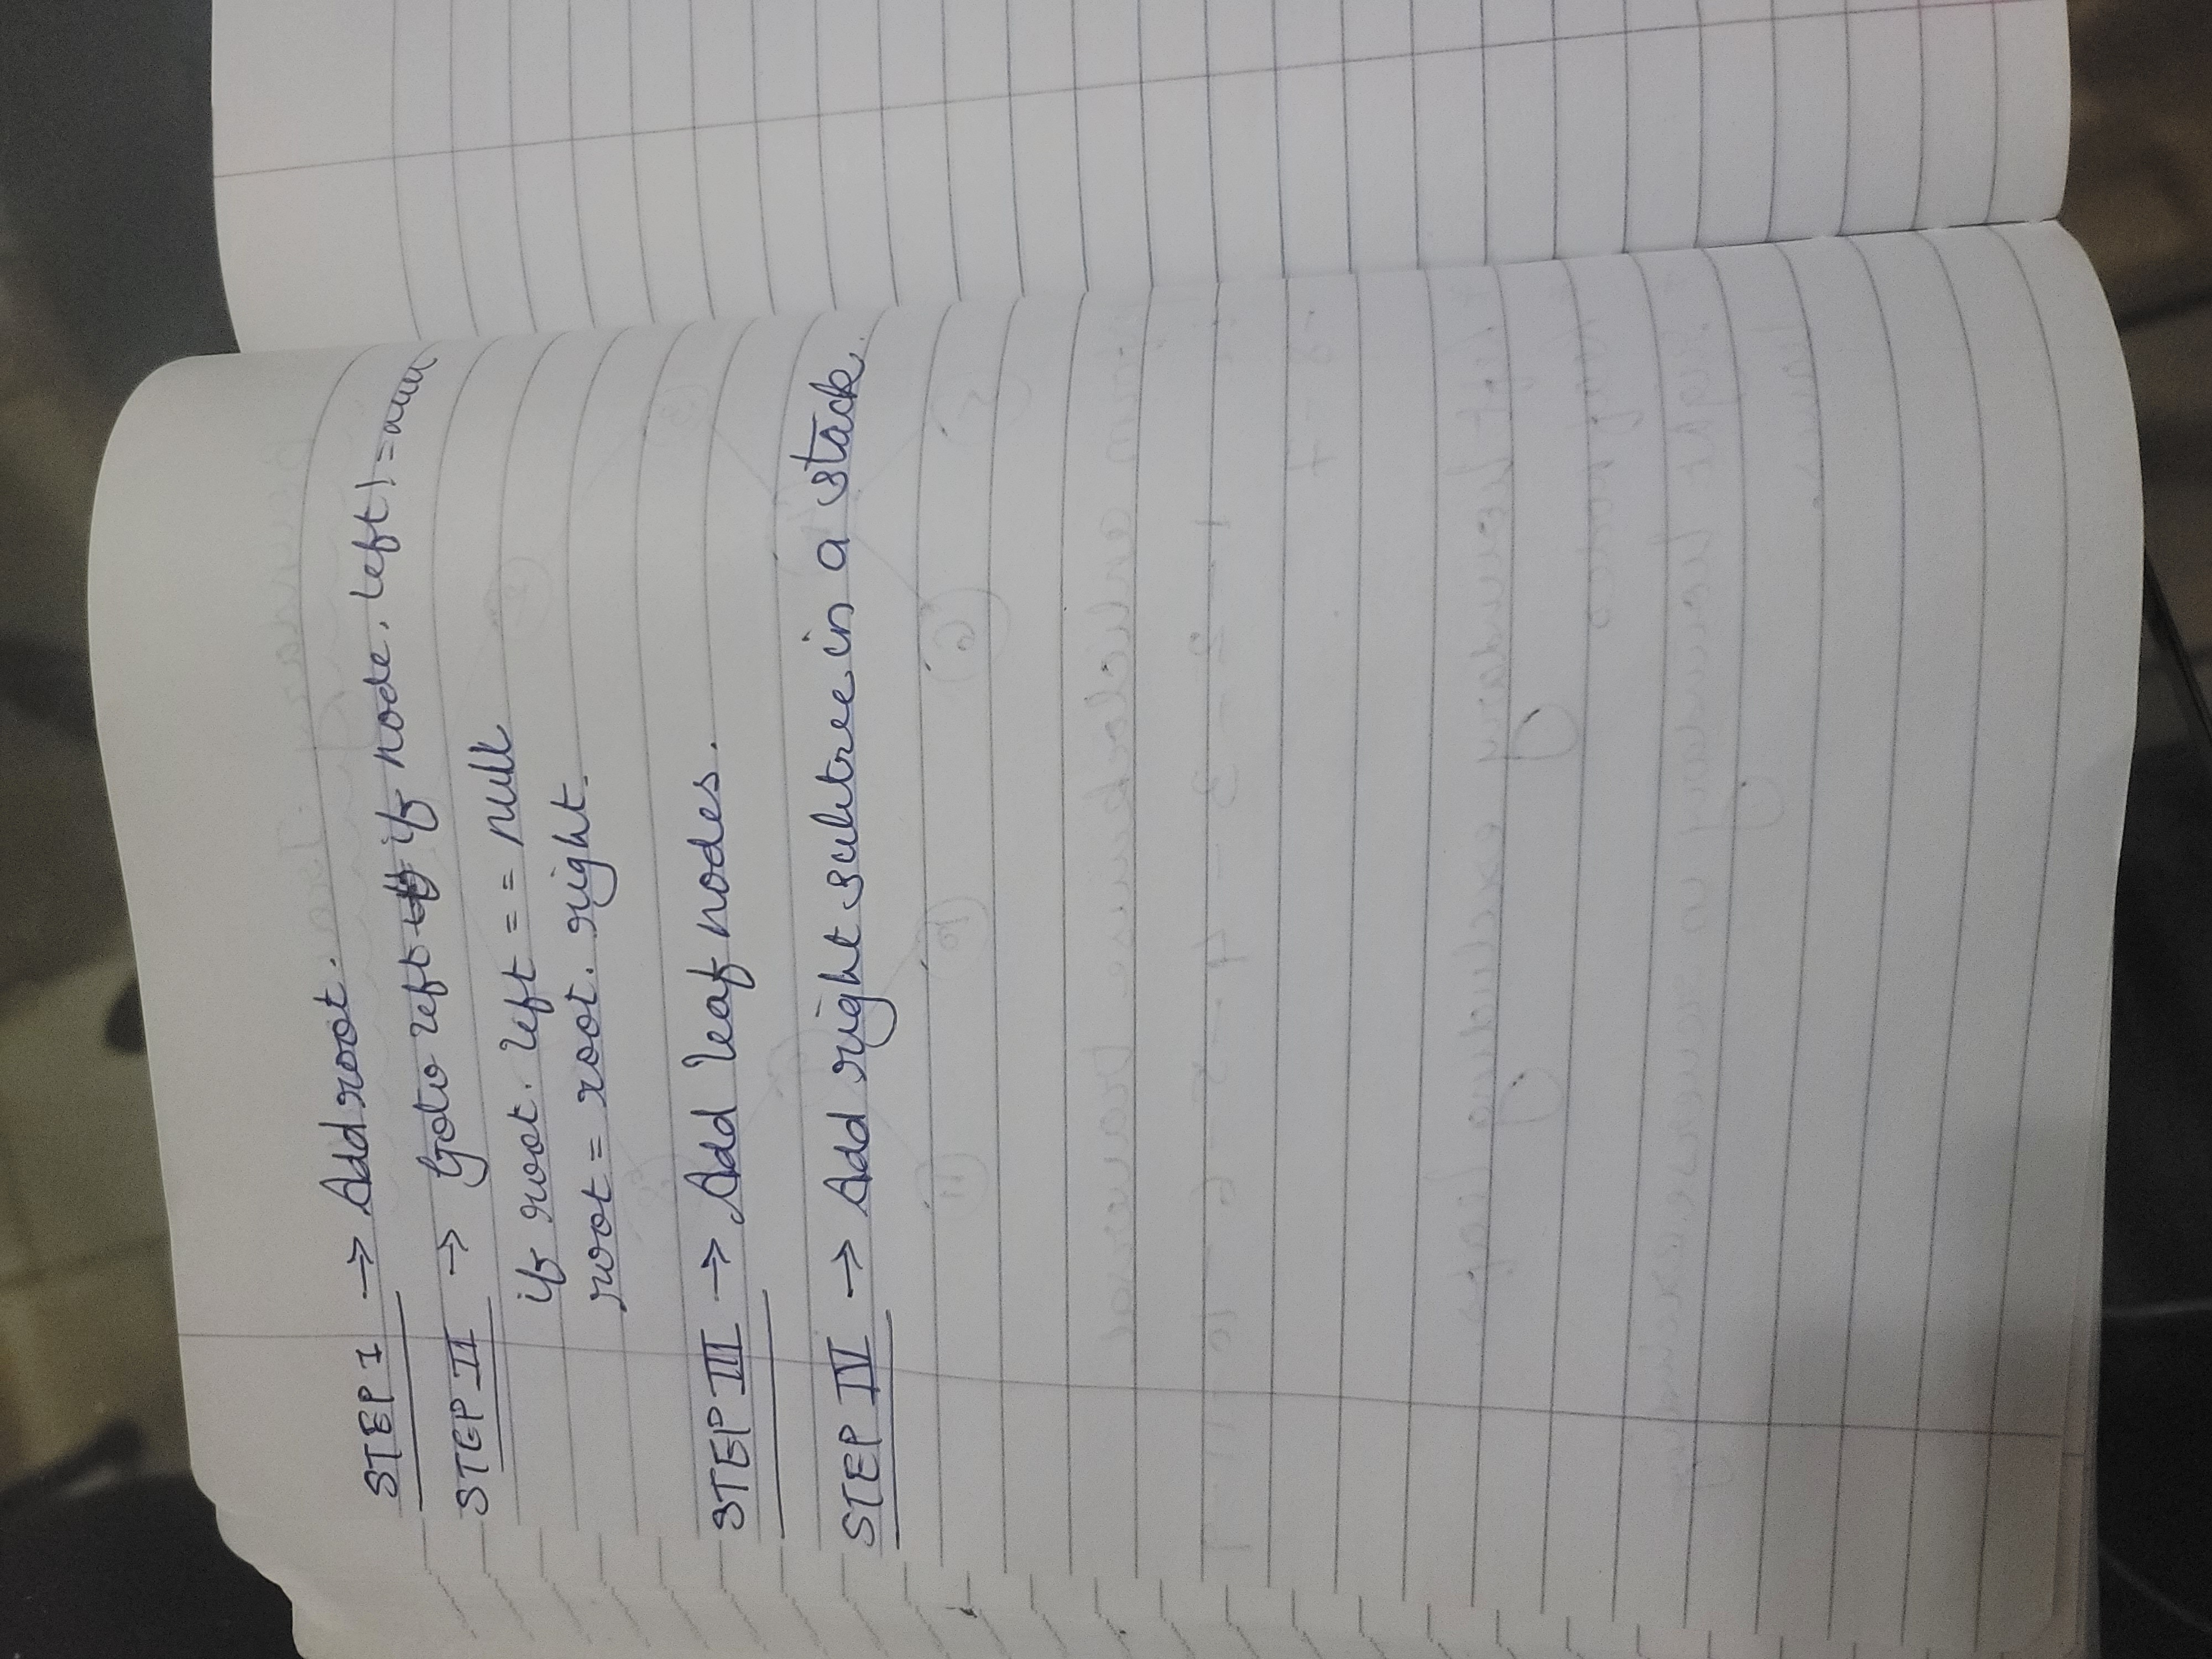 STEP I → Add root.
STEP II → Goto left if node.left != null
if root.left == null
root = root.right.
STEP III → Add leaf nodes.
STEP IV → Add right subtree in a stack.